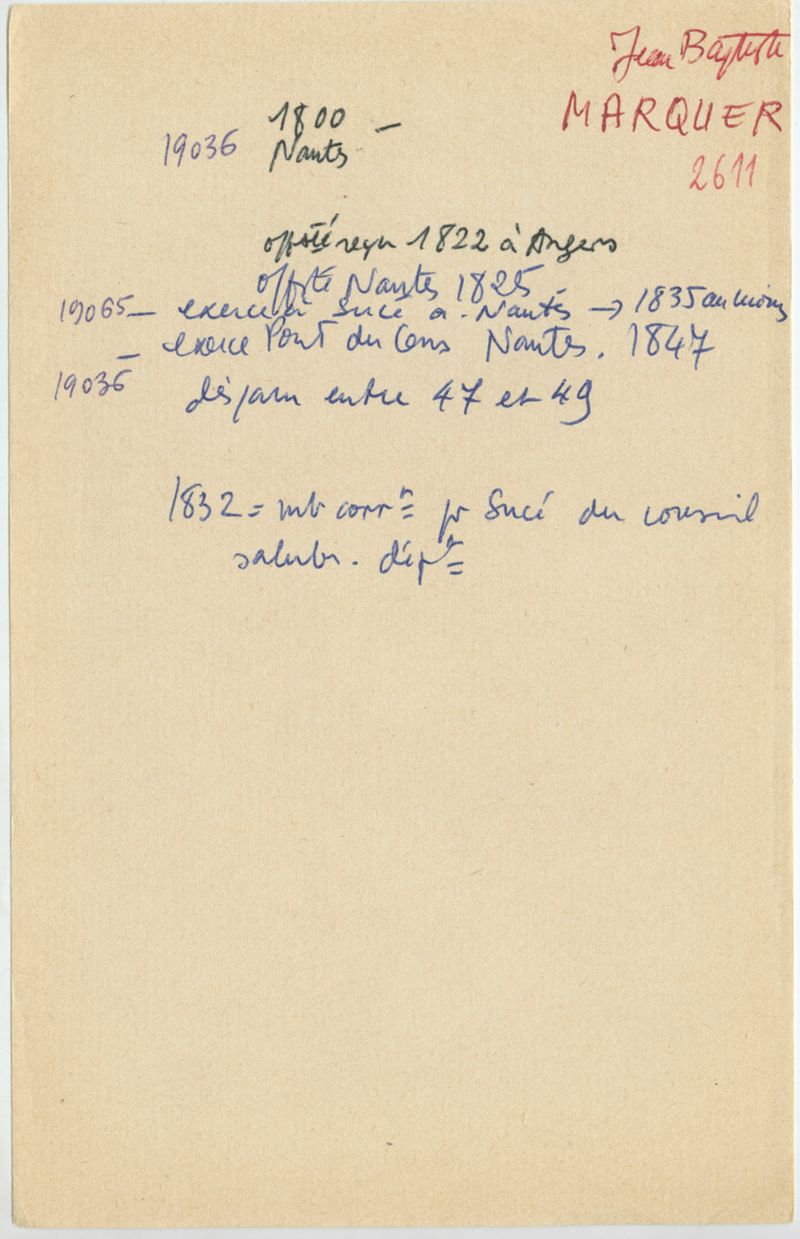 Jean Baptiste
MARQUER
2611
1800 –
19036 Nantes
offsté reçu 1822 à Angers
offsté Nantes 1825
19065 – exerce à Sucé à Nantes → 1835 au moins
– exerce Pont du Cens Nantes. 1847
19036 disparu entre 47 et 49
1832 = mb corrt pr Sucé du conseil
salubr. dépt